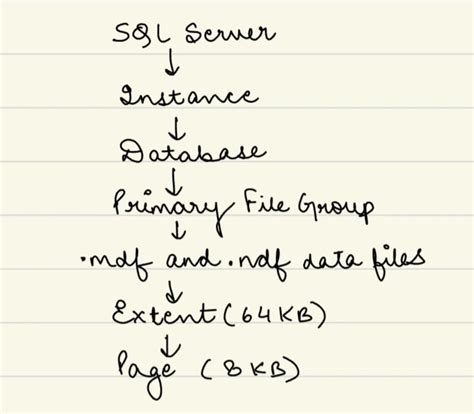 SQL Server
↓
Instance
↓
Database
↓
Primary File Group
↓
.mdf and .ndf data files
↓
Extent (64KB)
↓
Page (8KB)